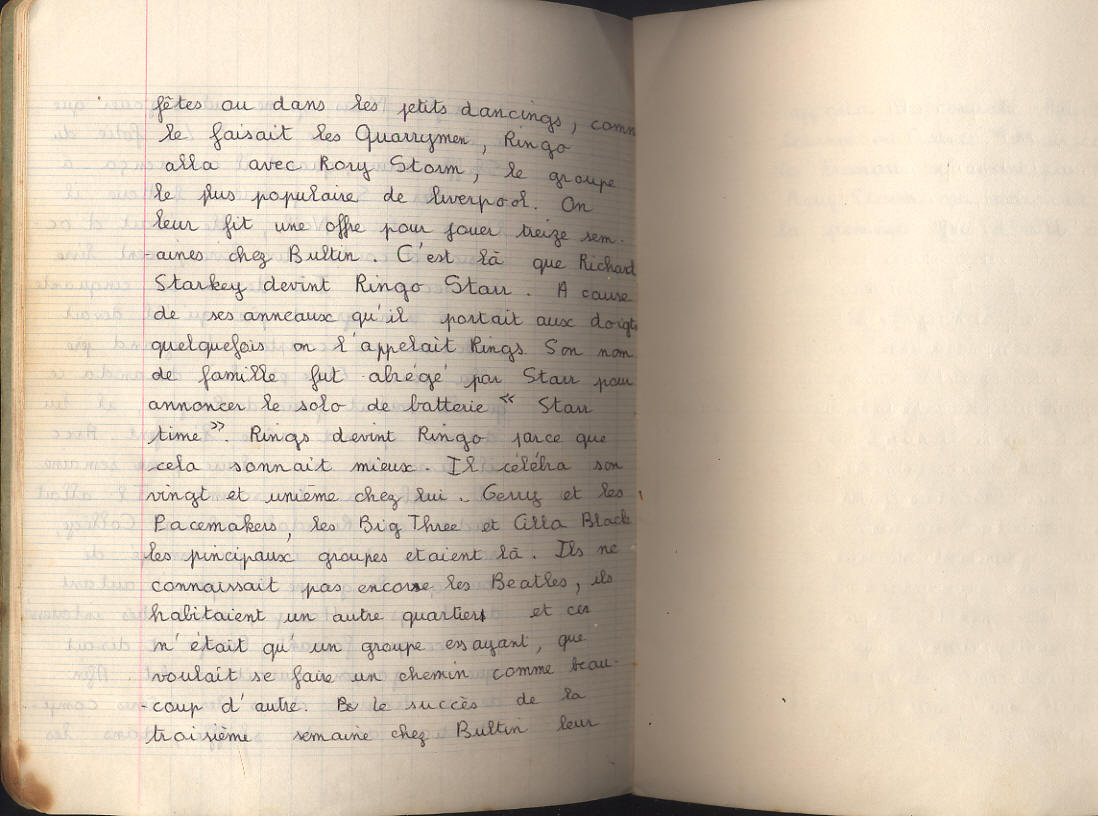 fêtes ou dans les petits dancings, comm
le faisait les Quarrymen, Ringo
alla avec Rory Storm, le groupe
le plus populaire de Liverpool. On
leur fit une offre pour jouer treize sem-
-aines chez Bultin. C'est là que Richard
Starkey devint Ringo Starr. A cause
de ses anneaux qu'il portait aux doigts
quelquefois on l'appelait Rings. Son nom
de famille fut abrégé par Starr pour
annoncer le solo de batterie « Starr
time ». Rings devint Ringo parce que
cela sonnait mieux. Il célébra son
vingt et unième chez lui. Gerry et les
Pacemakers, les Big Three et Cilla Black
les pincipaux groupes etaient là. Ils ne
connaissait pas encore les Beatles, ils
habitaient un autre quartier et ces
n'était qu'un groupe essayant, que
voulait se faire un chemin comme beau-
-coup d'autre. le succès de la
troisième semaine chez Bultin leur